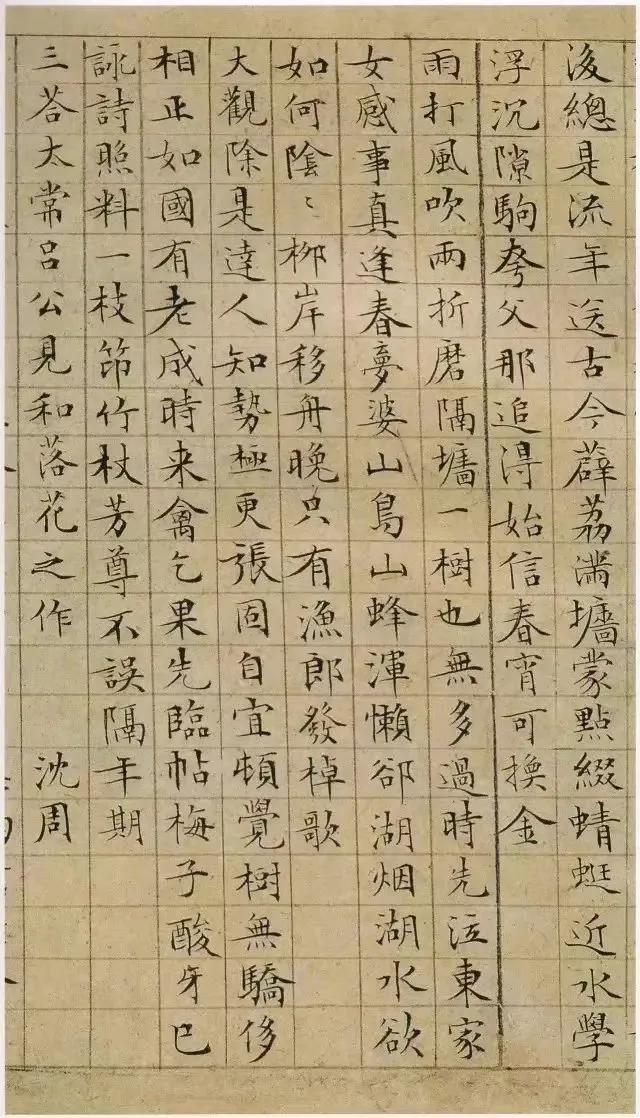 後總是流年送古今薜荔滿墻蒙點綴蜻蜓近水學
浮沉隙駒夸父那追得始信春宵可換金
雨打風吹兩折磨隔墻一樹也無多過時先泣東家
女感事真逢春夢婆山鳥山蜂渾懶郤湖烟湖水欲
如何陰〻柳岸移舟晚只有漁郎發棹歌
大觀除是達人知勢極更張固自宜頓覺樹無驕侈
相正如國有老成時来禽乞果先臨帖梅子酸牙巳
詠詩照料一枝笻竹杖芳尊不誤隔年期
三荅太常呂公見和落花之作 沈周